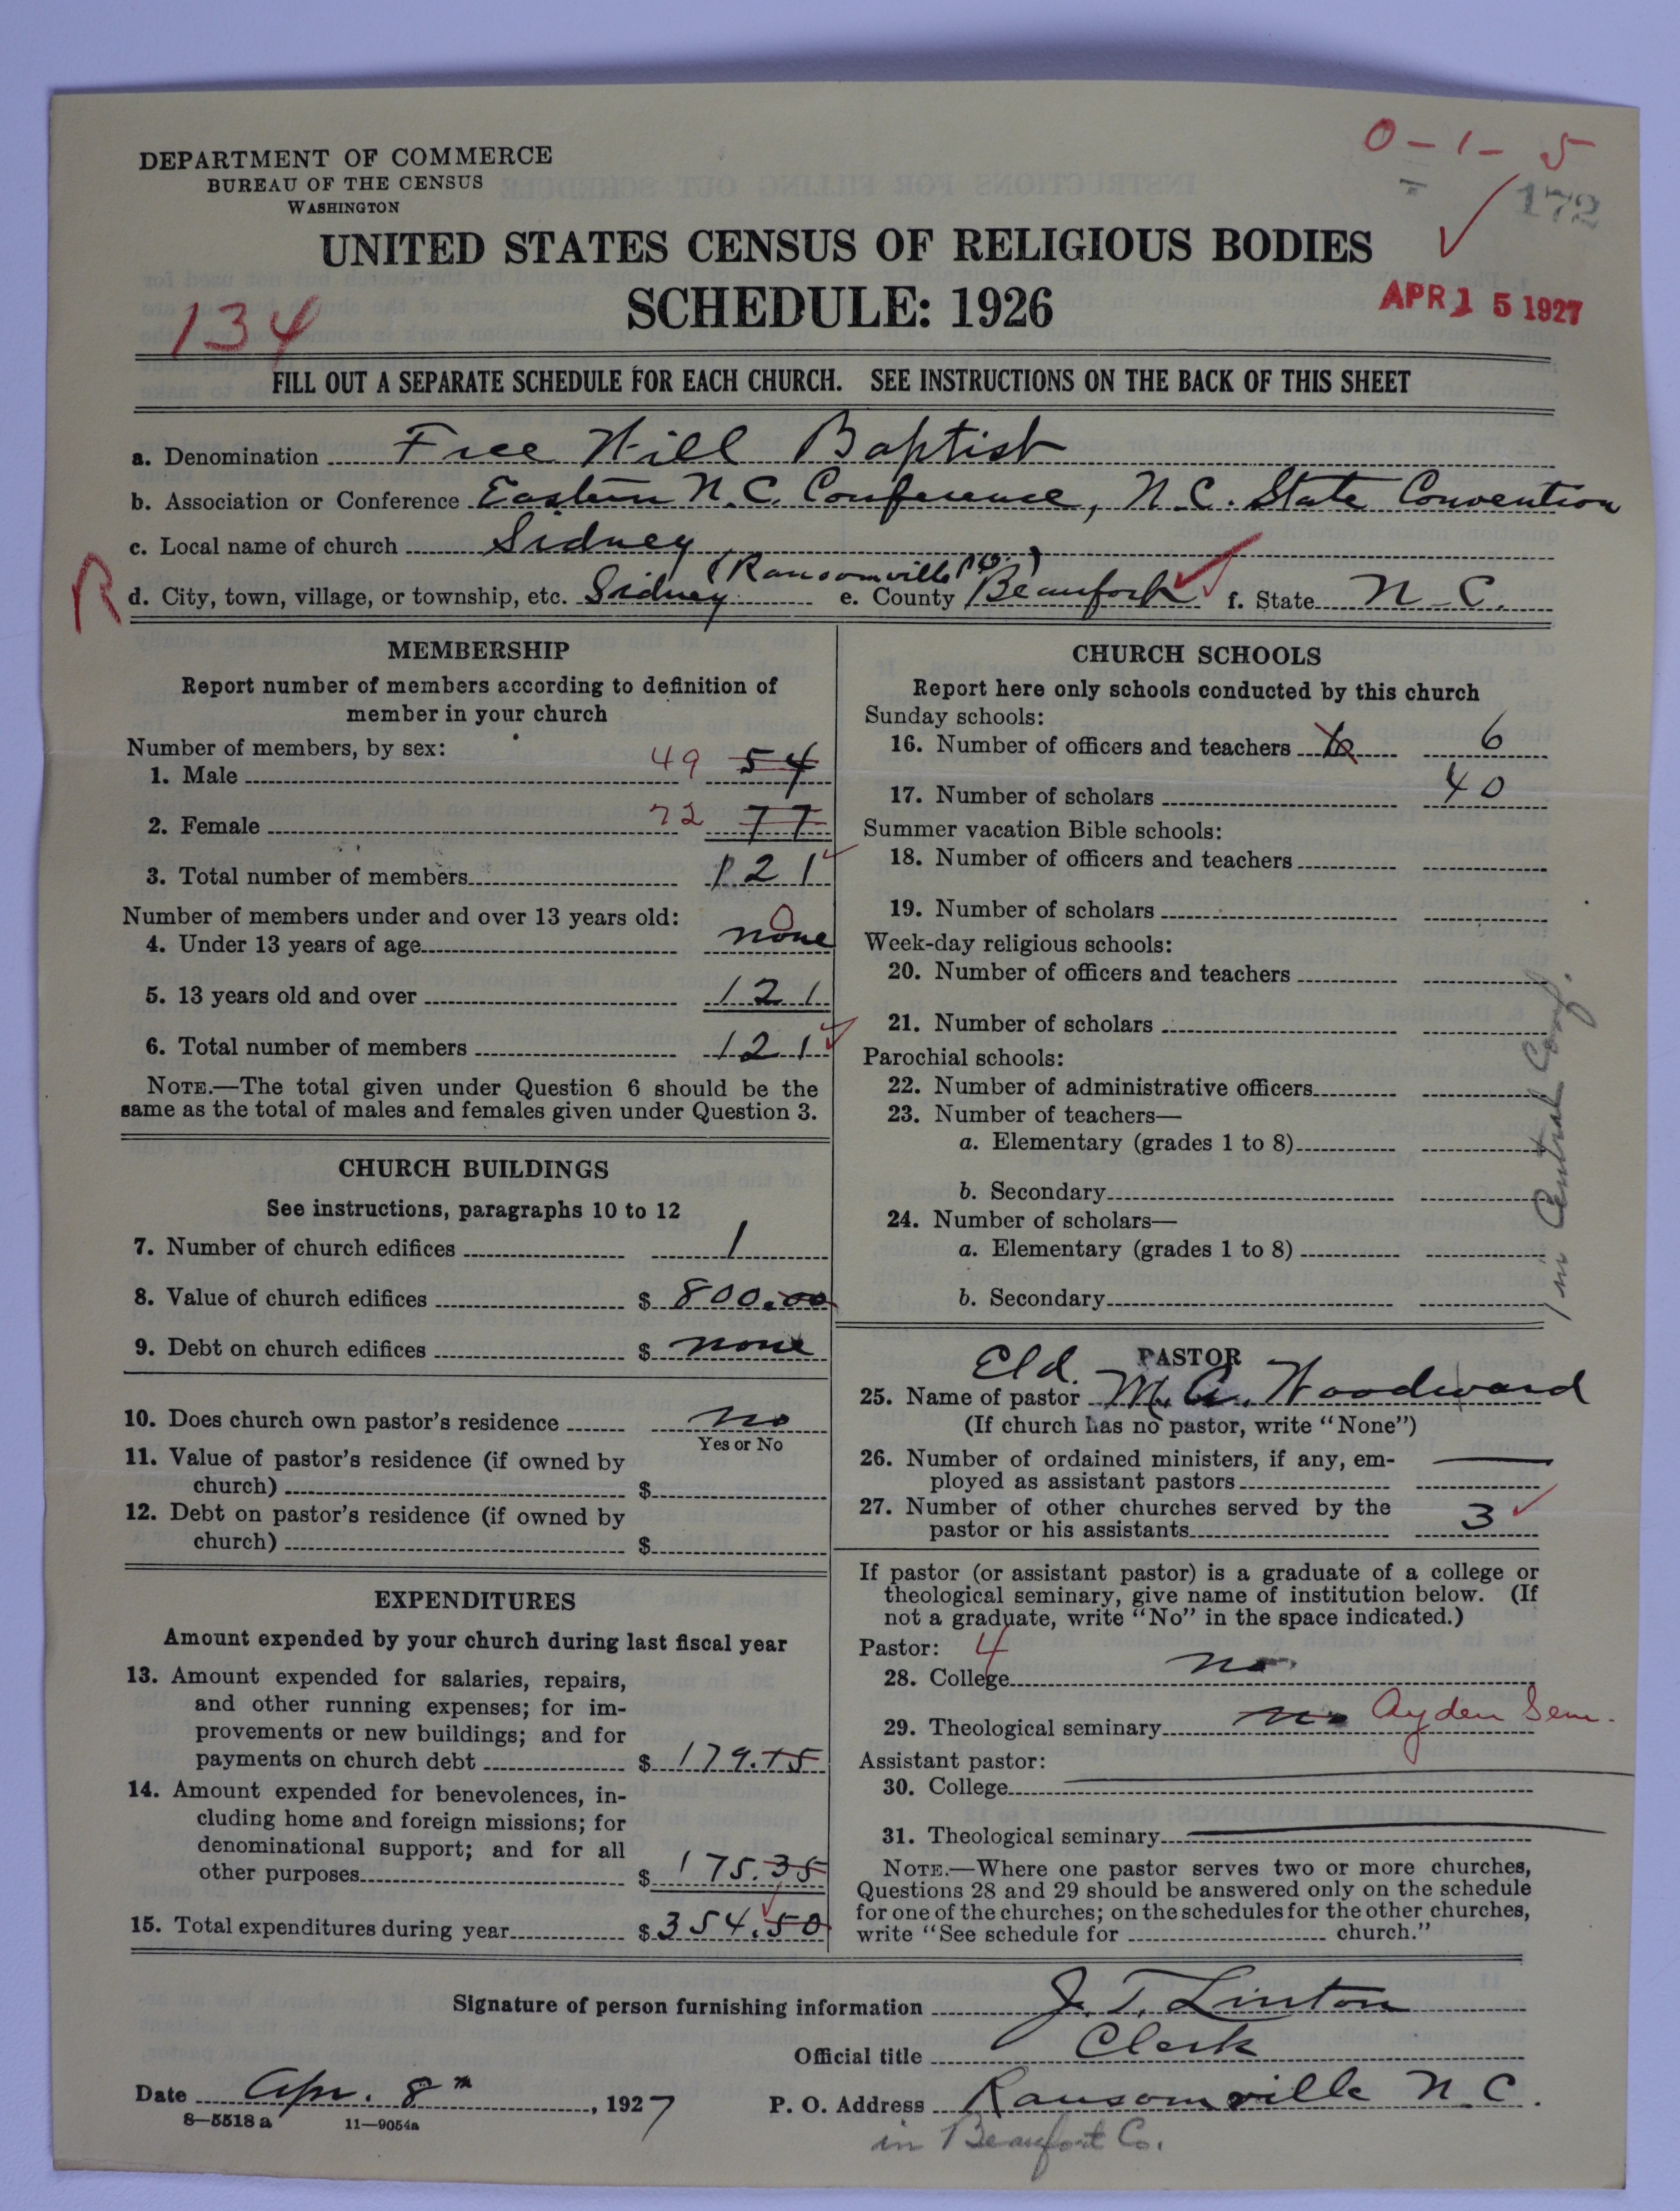 0-1-5
172
DEPARTMENT OF COMMERCE
BUREAU OF THE CENSUS
WASHINGTON
UNITED STATES CENSUS OF RELIGIOUS BODIES
SCHEDULE: 1926
134
APR 15 1927
FILL OUT A SEPARATE SCHEDULE FOR EACH CHURCH. SEE INSTRUCTIONS ON THE BACK OF THIS SHEET
a. Denomination Free Will Baptist
b. Association or Conference Eastern N.C. Conference, N.C. State Convention
c. Local name of church Sidney
(Ransomville P.O.)
R
d. City, town, village, or township, etc. Sidney e. County Beaufort f. State N.C.
MEMBERSHIP
Report number of members according to definition of
member in your church
Number of members, by sex:
1. Male 49 54
2. Female 72 77
3. Total number of members 121
Number of members under and over 13 years old:
4. Under 13 years of age none 0
5. 13 years old and over 121
6. Total number of members 121
NOTE.—The total given under Question 6 should be the
same as the total of males and females given under Question 3.
CHURCH BUILDINGS
See instructions, paragraphs 10 to 12
7. Number of church edifices 1
8. Value of church edifices $ 800.00
9. Debt on church edifices $ none
10. Does church own pastor's residence no
Yes or No
11. Value of pastor's residence (if owned by
church) $
12. Debt on pastor's residence (if owned by
church) $
EXPENDITURES
Amount expended by your church during last fiscal year
13. Amount expended for salaries, repairs,
and other running expenses; for im-
provements or new buildings; and for
payments on church debt $ 179.15
14. Amount expended for benevolences, in-
cluding home and foreign missions; for
denominational support; and for all
other purposes $ 175.35
15. Total expenditures during year $ 354.50
CHURCH SCHOOLS
Report here only schools conducted by this church
Sunday schools:
16. Number of officers and teachers 6 6
17. Number of scholars 40
Summer vacation Bible schools:
18. Number of officers and teachers
19. Number of scholars
Week-day religious schools:
20. Number of officers and teachers
21. Number of scholars
Parochial schools:
22. Number of administrative officers
23. Number of teachers—
a. Elementary (grades 1 to 8)
b. Secondary
24. Number of scholars—
a. Elementary (grades 1 to 8)
b. Secondary
1 in Central Conf.
PASTOR
25. Name of pastor Eld. M. A. Woodward
(If church has no pastor, write "None")
26. Number of ordained ministers, if any, em-
ployed as assistant pastors
27. Number of other churches served by the
pastor or his assistants 3
If pastor (or assistant pastor) is a graduate of a college or
theological seminary, give name of institution below. (If
not a graduate, write "No" in the space indicated.)
Pastor: 4
28. College no
29. Theological seminary no Ayden Sem.
Assistant pastor:
30. College
31. Theological seminary
NOTE.—Where one pastor serves two or more churches,
Questions 28 and 29 should be answered only on the schedule
for one of the churches; on the schedules for the other churches,
write "See schedule for church."
Signature of person furnishing information J. T. Linton
Official title Clerk
Date Apr. 8th, 1927 P. O. Address Ransomville N.C.
8-5518a 11-9054a
in Beaufort Co.